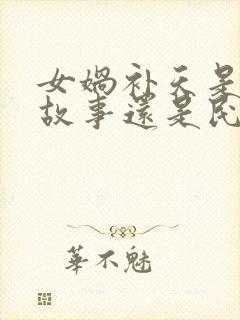 女娲补天是
故事还是民
華不魅